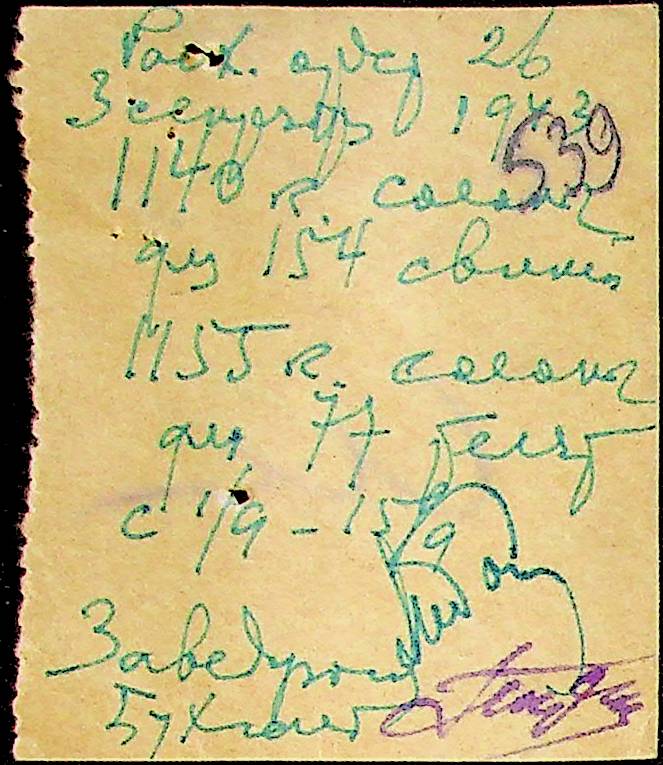 Расх. ордер 26
3 сентября 1943
539
1140 к. соломы
для 154 свиней
1155 к. соломы
для 77 телят
с 1/9 - 15/9
Заведующий
Бухгалт